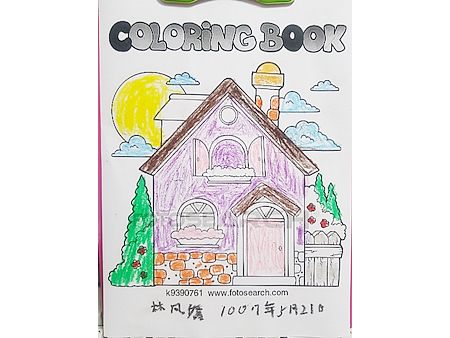 COLORING BOOK
FOTOSEARCH
k9390761 www.fotosearch.com
林凤 1007年5月21日